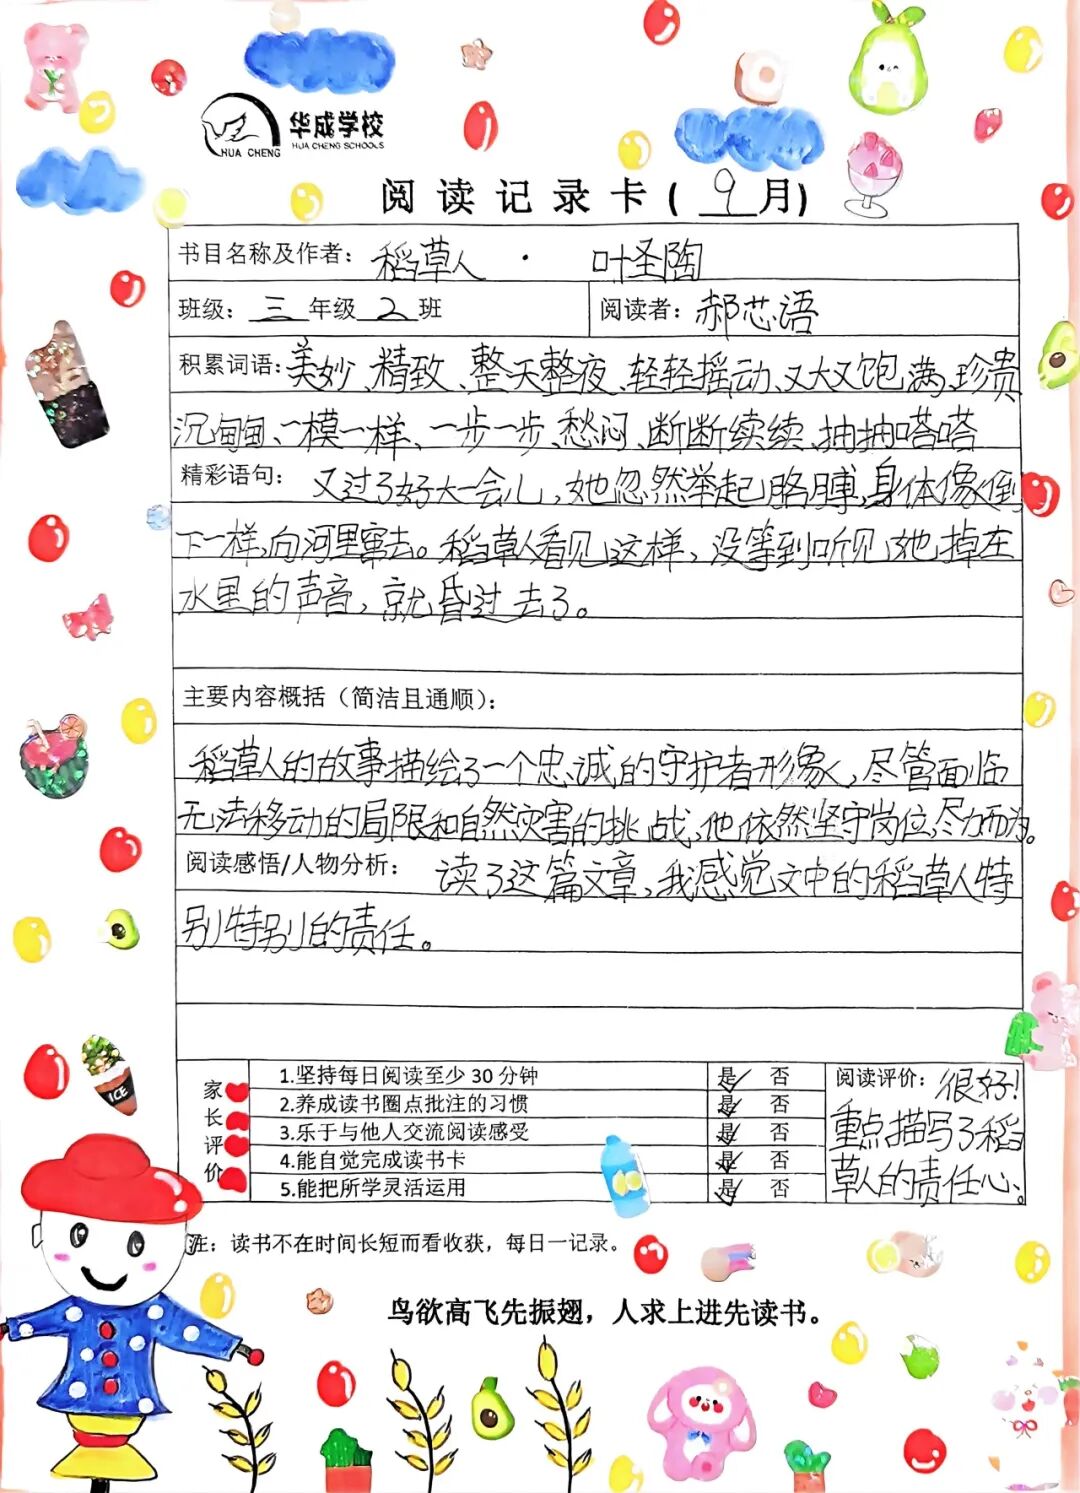 华成学校
HUA CHENG
HUA CHENG SCHOOLS
阅读记录卡(9月)
书目名称及作者：稻草人 · 叶圣陶
班级：三年级2班
阅读者：郝芯语
积累词语：美妙、精致、整天整夜、轻轻摇动、又大又饱满、珍贵
沉甸甸、一模一样、一步一步、愁闷、断断续续、抽抽嗒嗒
精彩语句：又过了好大一会儿，她忽然举起胳膊，身体像倒
下一样，向河里窜去。稻草人看见这样，没等到听见她掉在
水里的声音，就昏过去了。
主要内容概括（简洁且通顺）：
稻草人的故事描绘了一个忠诚的守护者形象，尽管面临
无法移动的局限和自然灾害的挑战，他依然坚守岗位，尽力而为。
阅读感悟/人物分析：读了这篇文章，我感觉文中的稻草人特
别特别的责任。
家长评价
1.坚持每日阅读至少30分钟 是✓ 否
2.养成读书圈点批注的习惯 是✓ 否
3.乐于与他人交流阅读感受 是✓ 否
4.能自觉完成读书卡 是✓ 否
5.能把所学灵活运用 是✓ 否
阅读评价：很好！
重点描写了稻
草人的责任心。
注：读书不在时间长短而看收获，每日一记录。
鸟欲高飞先振翅，人求上进先读书。
ICE